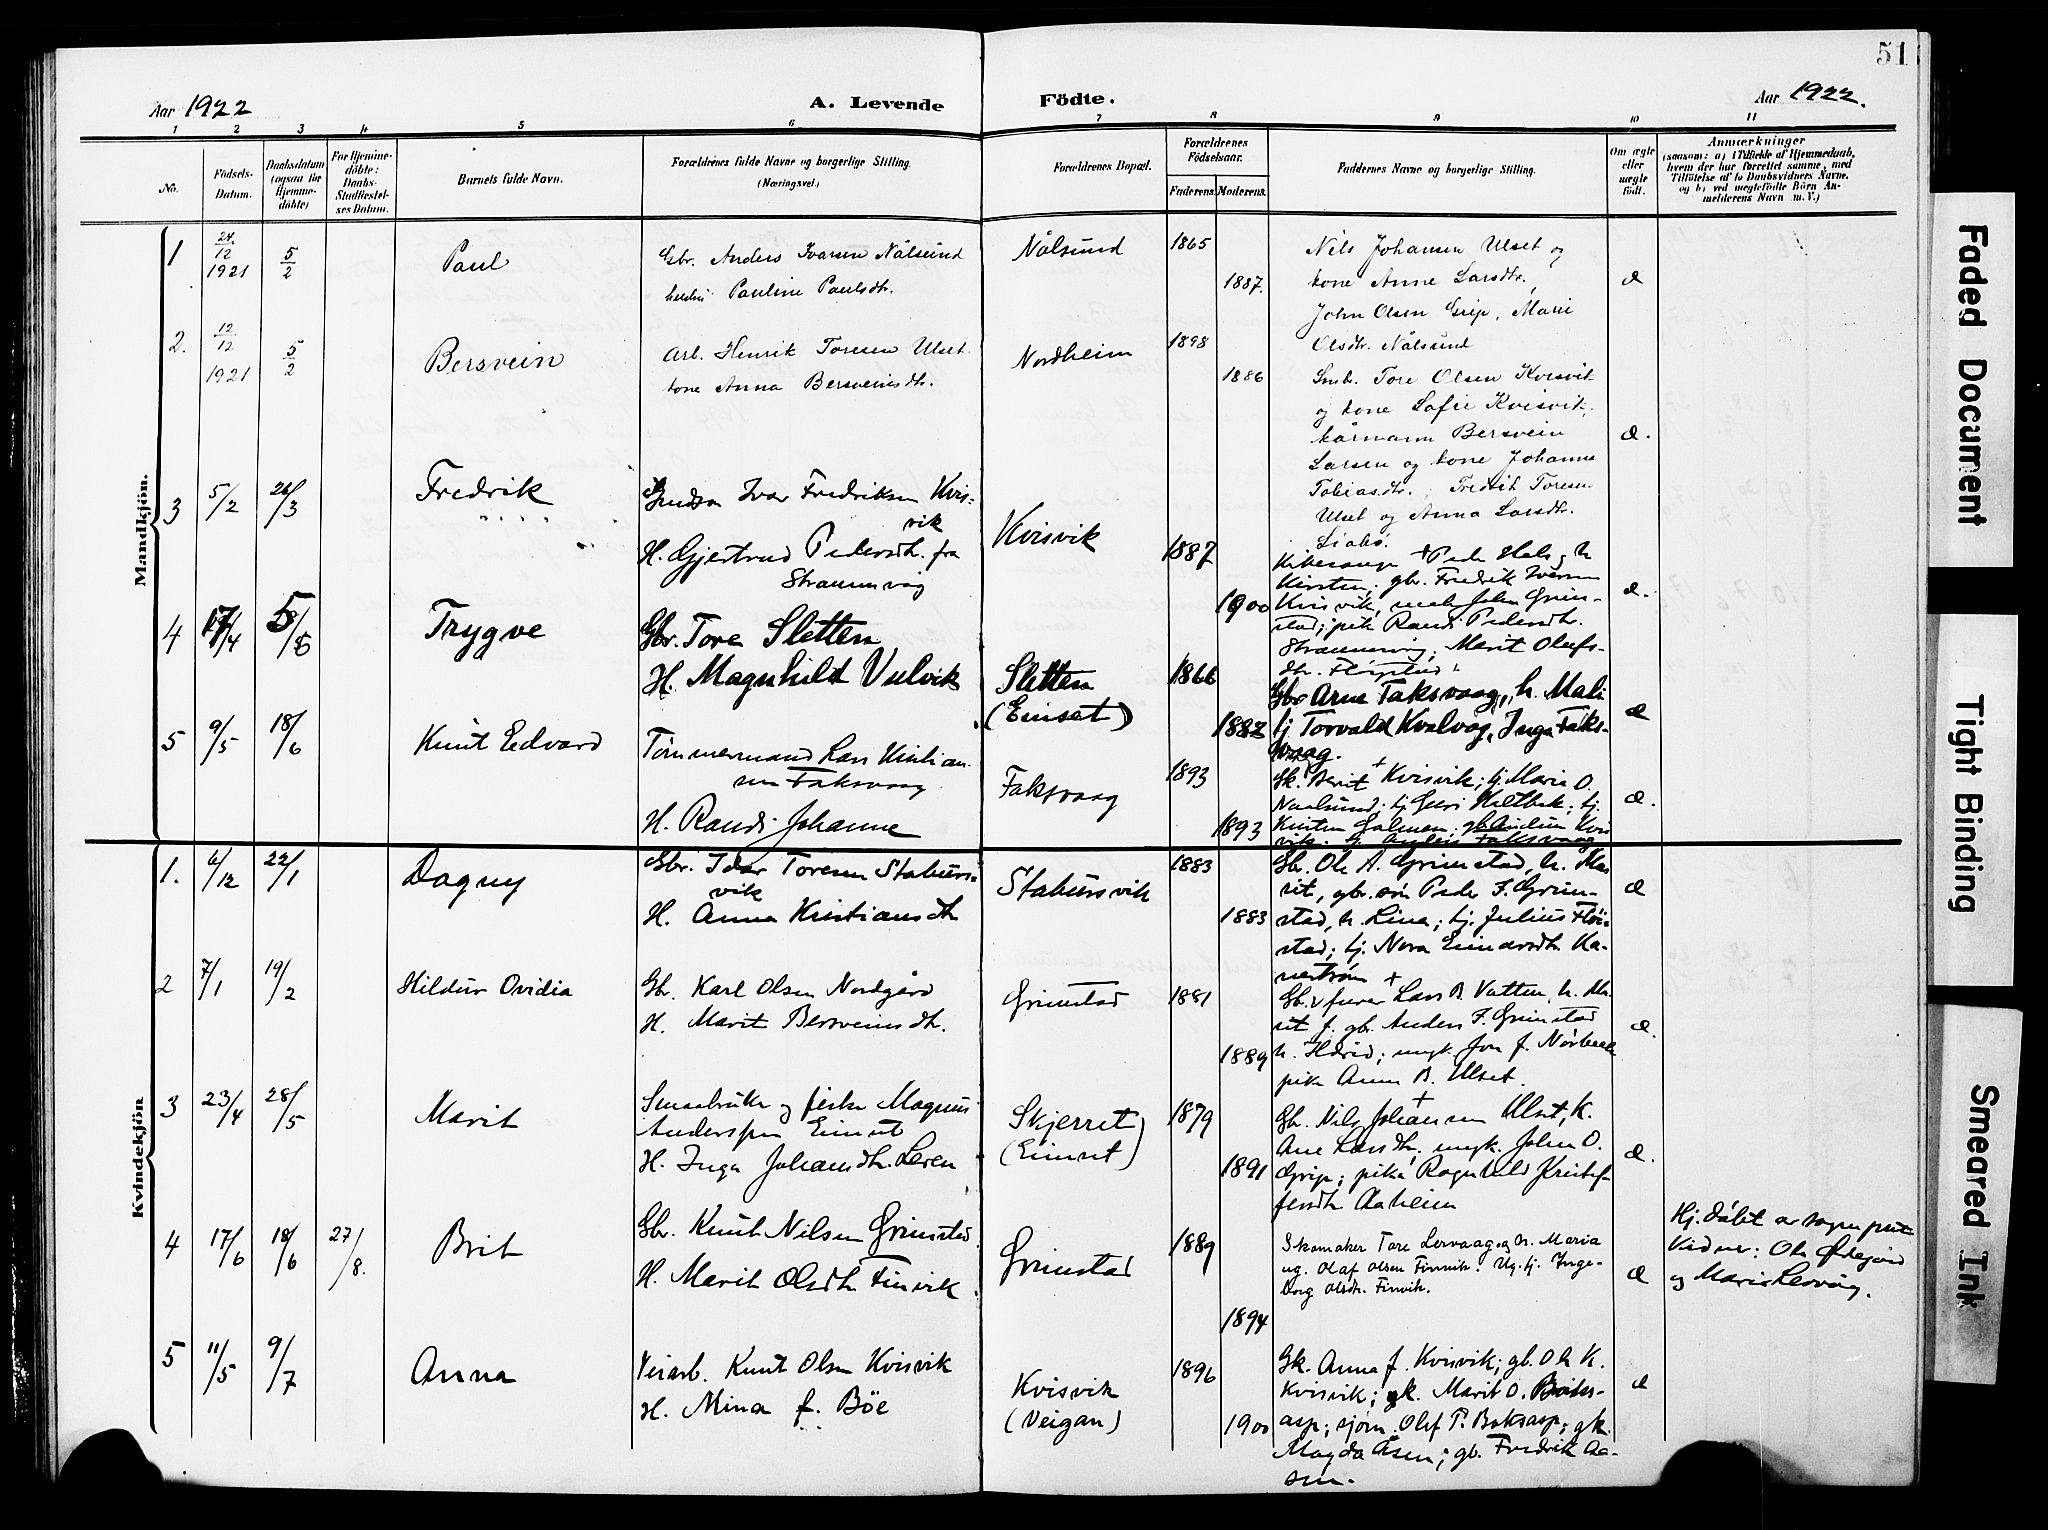 51
Aar 1922
A. Levende
Födte.
Aar 1922.
1 2 3 4 5 6 7 8 9 10 11
No.
Födsels-
Datum.
Daabsdatum
(ogsaa for
Hjemme-
döbte)
For Hjemme-
döbte:
Daabs-
Stadfæstel-
ses Datum.
Barnets fulde Navn.
Forældrenes fulde Navne og borgerlige Stilling.
(Næringsvei.)
Forældrenes Bopæl.
Forældrenes
Födselsaar.
Faderens. Moderens.
Faddernes Navne og borgerlige Stilling.
Om ægte
eller
uægte
födt.
Anmærkninger
(saasom: a) i Tilfælde af Hjemmedaab,
hvem der har forrettet samme, med
Tilföielse af to Daabsvidners Navne.
og b) ved uægtefödte Börn An-
melderens Navn m. V.)
Mandkjön.
1 24/12 1921 5/2 Paul
Gbr. Anders Ivarsen Nålsund
Pauline Paulsdtr.
Nålsund 1865
1887.
Nils Johansen Ulset og
kone Anne Larsdtr.
John Olsen Grip, Marie
Olsdtr. Nålsund
æ
2. 12/12 1921 5/2 Bersvein
Arb. Henrik Toresen Ulset
kone Anna Bersveinsdtr.
Nordheim 1898
1886
Smb. Tore Olsen Kvisvik
og kone Sofie Kvisvik,
kårmann Bersvein
Larsen og kone Johanna
Tobiasdtr.; Fredrik Toresen
Ulset og Anna Larsdtr.
Liabø.
æ.
3 5/2 26/3 Fredrik
Ivar Fredriksen Kvis-
vik
H. Gjertrud Pedersdtr. fra
Straumsvåg
Kvisvik 1887
1900
Kirsten; gbr. Fredrik Iversen
Kvisvik, John Grim-
stad; pike Randi Pedersdtr.
Marit Olufs-
dtr.
æ.
4 17/4 5/6 Trygve
Gbr. Tore Sletten
H. Magnhild Vulvik
Sletten
(Einset)
1866
1882
Gbr Arne Faksvaag, h. Mali
tj Torvald Kvalvag, Inga Faks-
vaag.
æ
5 9/5 18/6 Knut Edvard
Tømmermand Lars Kristian-
sen Faksvaag
H. Randi Johanne
Faksvaag 1893
1893
Gk. Berit Kvisvik; tj. Marie O.
Naalsund; tj Guri Hiltbek; tj.
Kristen Halmen; gb. Audun Kvis
vik. tj. Anders Faksvaag
æ.
Kvindekjön
1. 6/12 22/1 Dagny
Gbr. Idar Toresen Staburs-
vik
H. Anna Kristiansdtr
Stabursvik 1883
1883
Gb. Ole A. Grimstad, h. Ma-
rit, gbr.søn Peder F. Grim-
stad, h. Lina; tj. Julius Fløi-
stad; tj. Nora Einarsdtr Ka-
nestrøm
æ
2 7/1 19/2 Hildur Ovidia
Gb. Karl Olsen Nordgård
H. Marit Bersveinsdtr.
Grimstad 1881
1889
Gb. v furer Lars B. Vatten, h. Ma-
rit f. gb. Anders F. Grimstad
h. ; ungk. Jon f. Nørbech
pike Anna B. Ulset.
æ.
3 23/4 28/5 Marit
Smaabruker og fisker Magnus
Anderssen Einset
H. Inga Johansdtr. Leren
Skjerret
(Einset)
1879
1891
Gb. Nils Johansen Ulset, K.
Ane Larsdtr, ungk. John O.
Grip; pike Ragnhild Kristof-
fersdtr Aaheim
æ.
4 17/6 18/6 27/8. Brit
Gbr. Knut Nilsen Grimstad
H. Marit Olsdtr Finvik.
Grimstad 1889
1894
Skomaker Tore Lervaag og h. Maria
ug. Olaf Olsen Finnvik. Ug. tj. Inge-
borg Olsdtr. Finvik.
æ
Hj.døbt av sognepræst
Vidner: Ole Ødegård
og Marie Lervåg.
5 11/5 9/7 Anna
Veiarb. Knut Olsen Kvisvik
H. Mina f. Böe
Kvisvik
(Veigan)
1896
1900
Gk. Anna f. Kvisvik; gb. Ole K.
Kvisvik; gk. Marit O. Boks-
asp; sjøm. Olef P. Boksasp; gk.
Magda Åsen; gb. Fredrik Aa-
sen.
æ
Faded Document
Tight Binding
Smeared Ink